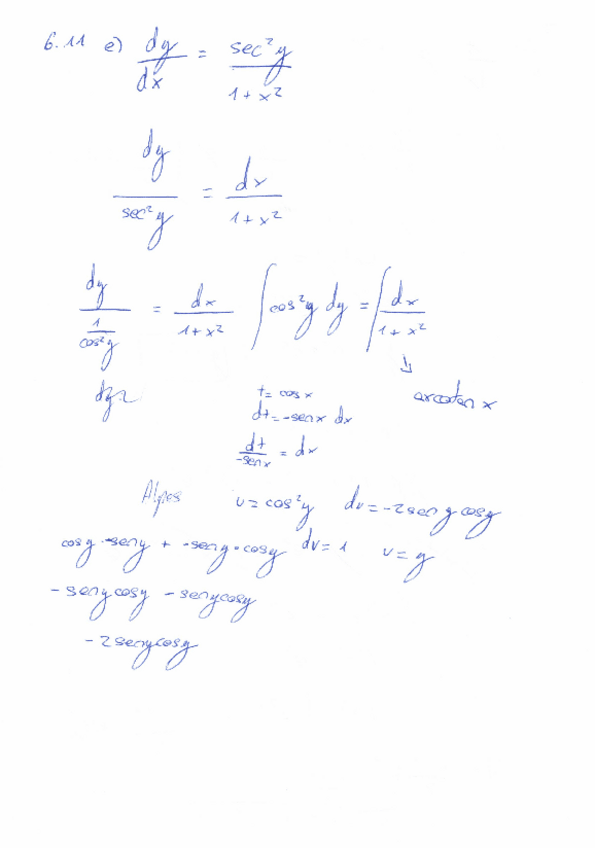 6.11 e) dy/dx = sec²y/(1+x²)
dy/sec²y = dx/(1+x²)
dy/(1/cos²y) = dx/(1+x²) ∫cos²y dy = ∫dx/(1+x²)
↳ arcotan x
t = cos x
dt = -sen x dx
dt/(-sen x) = dx
u = cos²y du = -2sen y cos y
cos y · -sen y + -sen y · cos y dv = 1 v = y
- sen y cos y - sen y cos y
- 2 sen y cos y